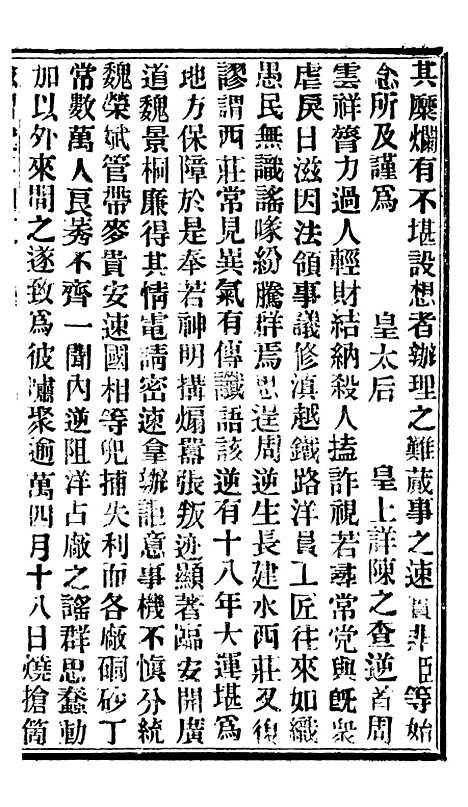 其糜爛有不堪設想者辦理之難蕆事之速實非臣等始
念所及謹爲　皇太后　皇上詳陳之查逆首周
雲祥膂力過人輕財結納殺人搕詐視若尋常党與旣衆
虐戾日滋因法領事議修滇越鐵路洋員工匠往來如織
愚民無識謠喙紛騰群焉思逞周逆生長建水西莊又復
謬謂西莊常見異氣有傳讖語該逆有十八年大運堪爲
地方保障於是奉若神明搆煽囂張叛迹顯著臨安開廣
道魏景桐廉得其情電請密速拿辦詎意事機不愼分統
魏榮斌管帶麥貴安速國相等兜捕失利而各廠硐砂丁
常數萬人良莠不齊一聞內逆阻洋占廠之謠群思蠢動
加以外來閒之遂致爲彼嘯聚逾萬四月十八日燒搶箇